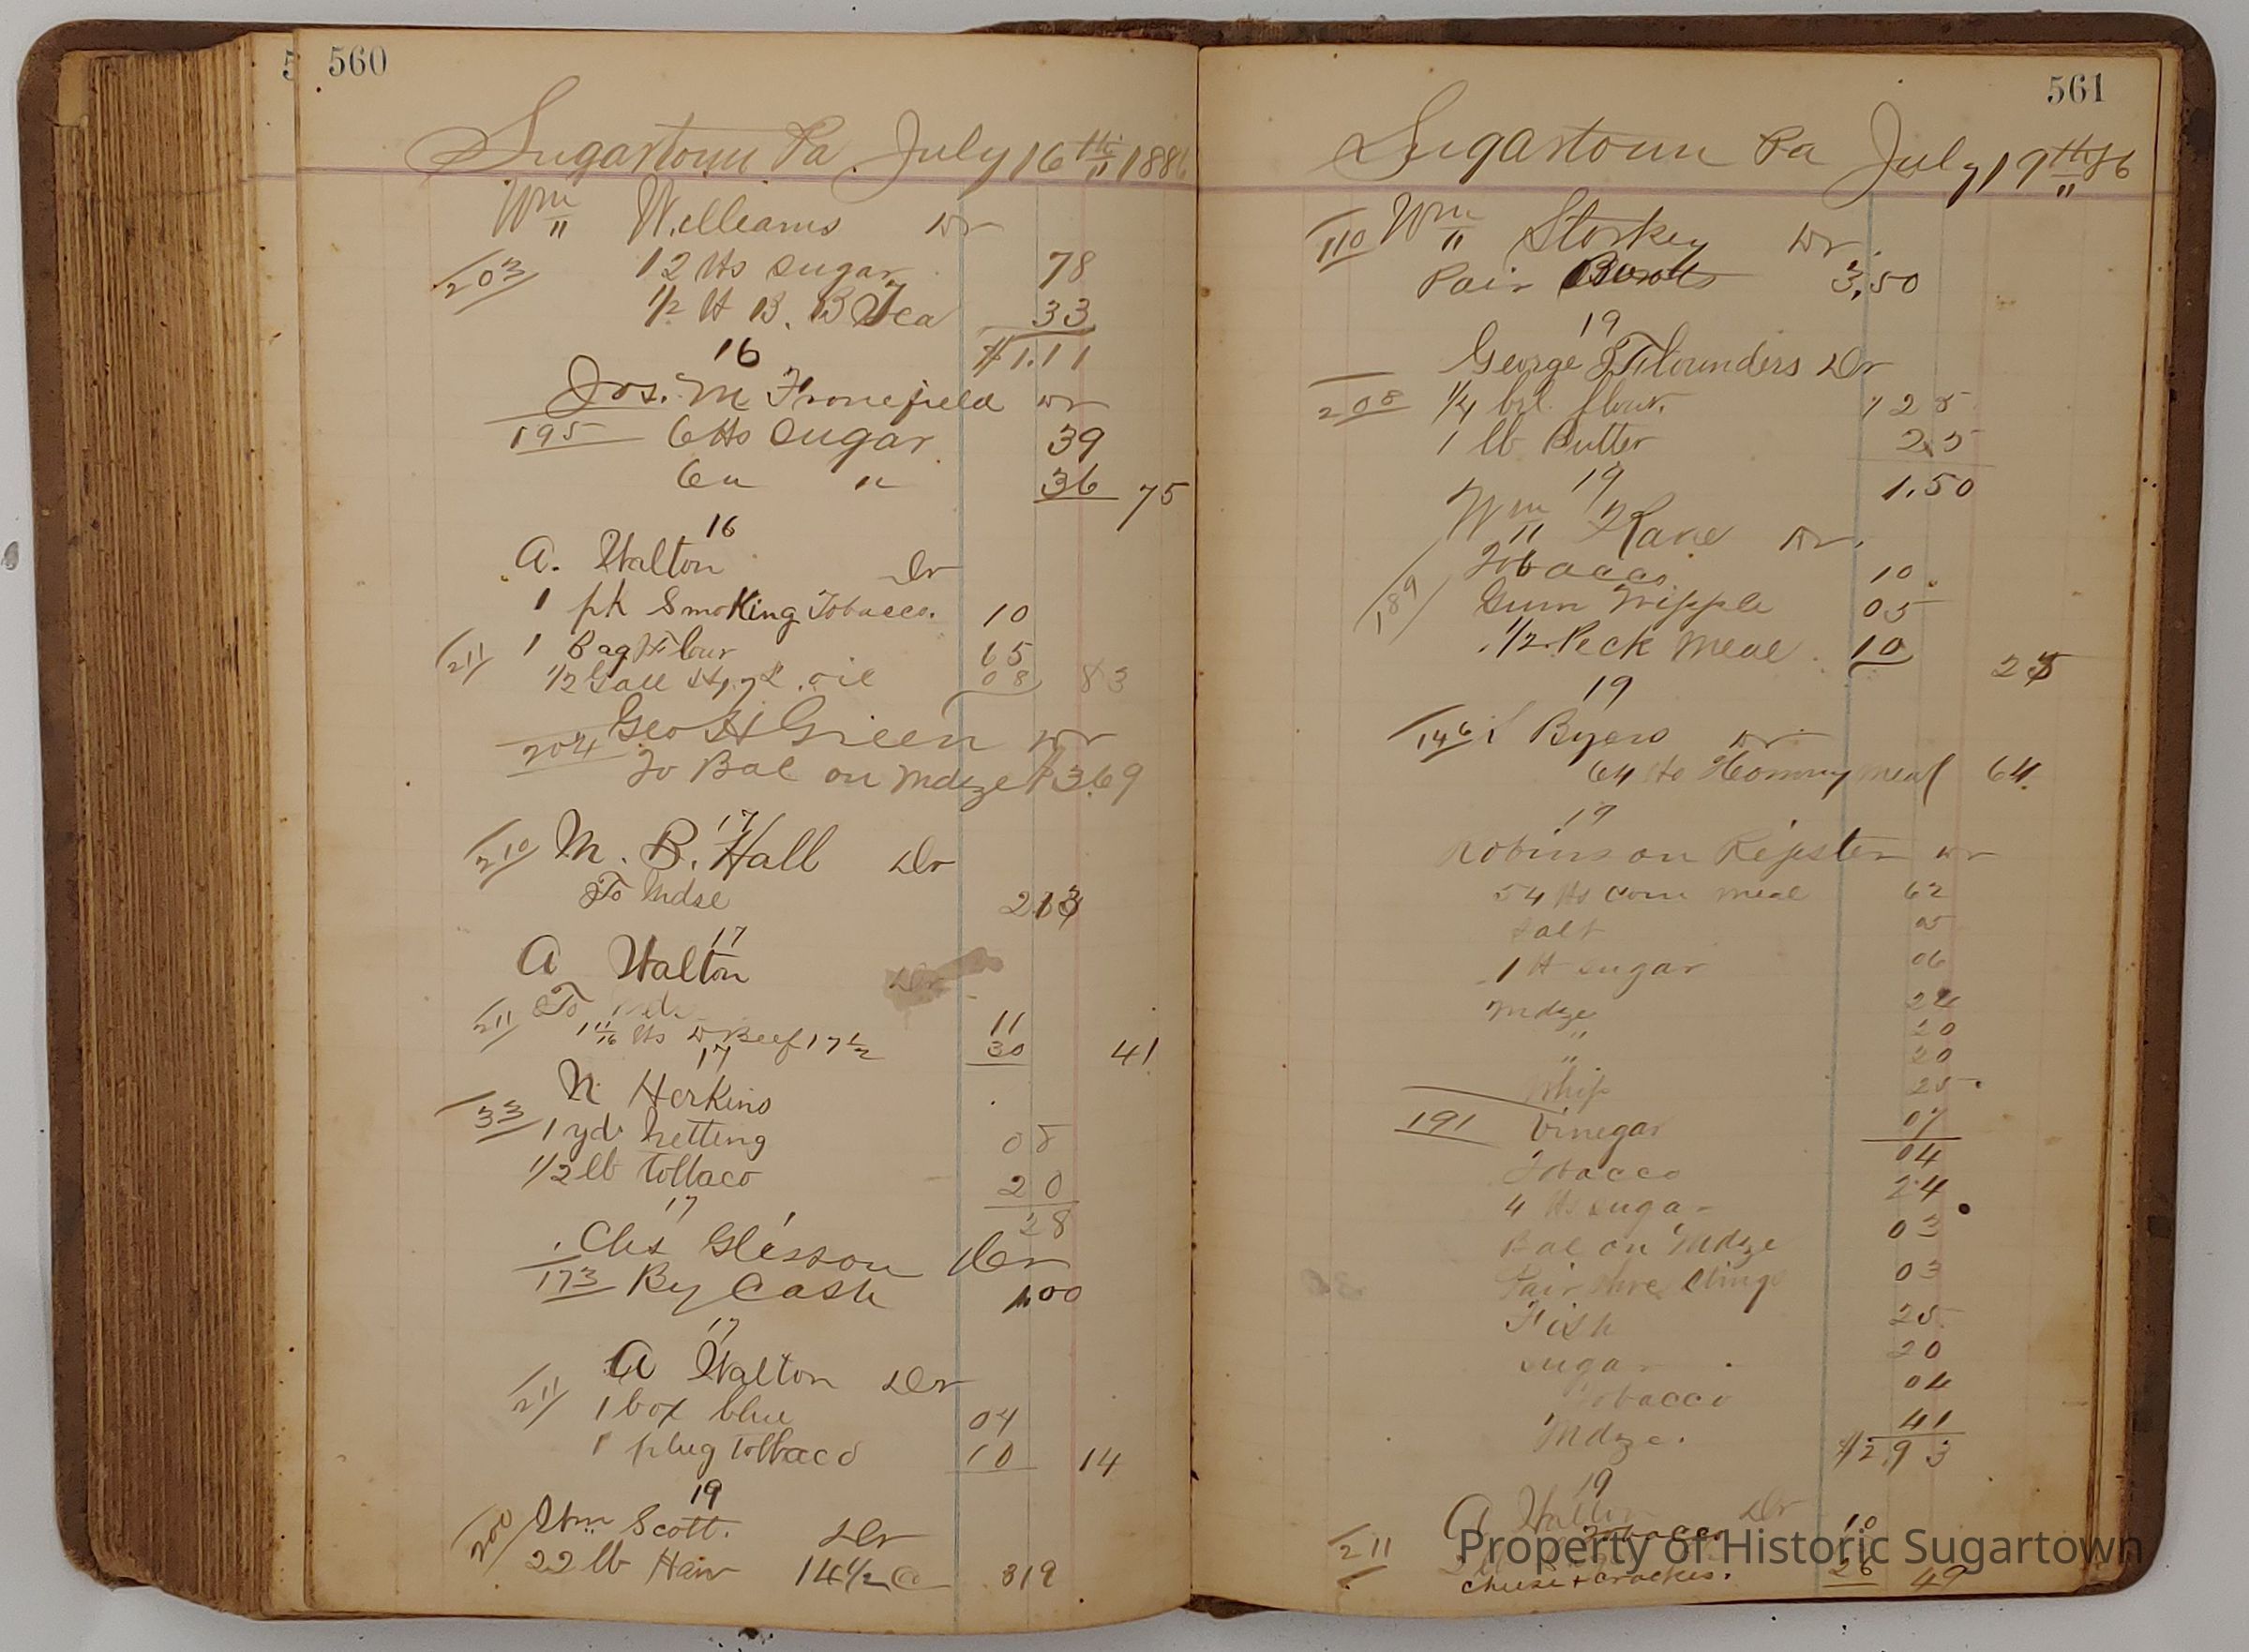 5 560
Sugartown Pa July 16th 1886
Wm Williams Dr
203 12 lbs Sugar 78
1/2 lb B. B Tea 33
16 $1.11
Jos. M Fronefield Dr
195 6 lbs Sugar 39
6 " " 36 75
16
A. Walton Dr
1 pk Smoking Tobacco. 10
211 1 Bag Flour 65
1/2 Gall oil 08 83
Geo H Green Dr
204 To Bal on Mdze $3.69
17
210 M. B. Hall Dr
To Mdse 213
17
A Walton Dr
211 To
1 11/16 lbs D Beef 17 1/2 11
17 30 41
N Herkins
33 1 yd Netting 08
1/2 lb Tobbaco 20
17 28
Chs Glisson Cr
173 By Cash 1.00
17
A Walton Dr
211 1 box blue 04
1 plug tobbaco 10 14
19
200 Wm Scott. Dr
22 lb Ham 14 1/2 @ 319
561
Sugartown Pa July 19th 86
110 Wm Storkey Dr.
Pair Boots 3.50
19
George Flounders Dr
208 1/4 brl. flour. 125
1 lb Butter 25
19 1.50
Wm Kane Dr.
Tobacco 10
189 Gum Nipple 05
1/2 Peck Meal 10
25
19
146 Byers Dr
64 lbs Hominy meal 64
19
Robinson Register Dr
54 lbs corn meal 62
Salt 05
1 lb sugar 06
Mdze 24
" 20
" 20
Whip 25
191 Vinegar 07
Tobacco 04
4 lbs sugar 24
Bal on Mdze 03
Pair 03
Fish 25
Sugar 20
Tobacco 04
Mdze. 41
$2.93
19
A Walton Dr
Tobacco 10
211
Cheese + crackers. 26 49
Property of Historic Sugartown